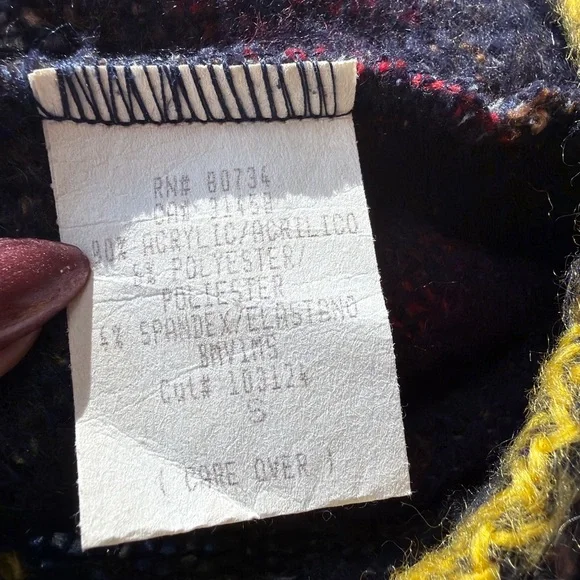 RN# 80734
CA# 31459
90% ACRYLIC/ACRILICO
6% POLYESTER/
POLIESTER
4% SPANDEX/ELASTANO
BMV1MS
Cut# 103124
S
( CARE OVER )